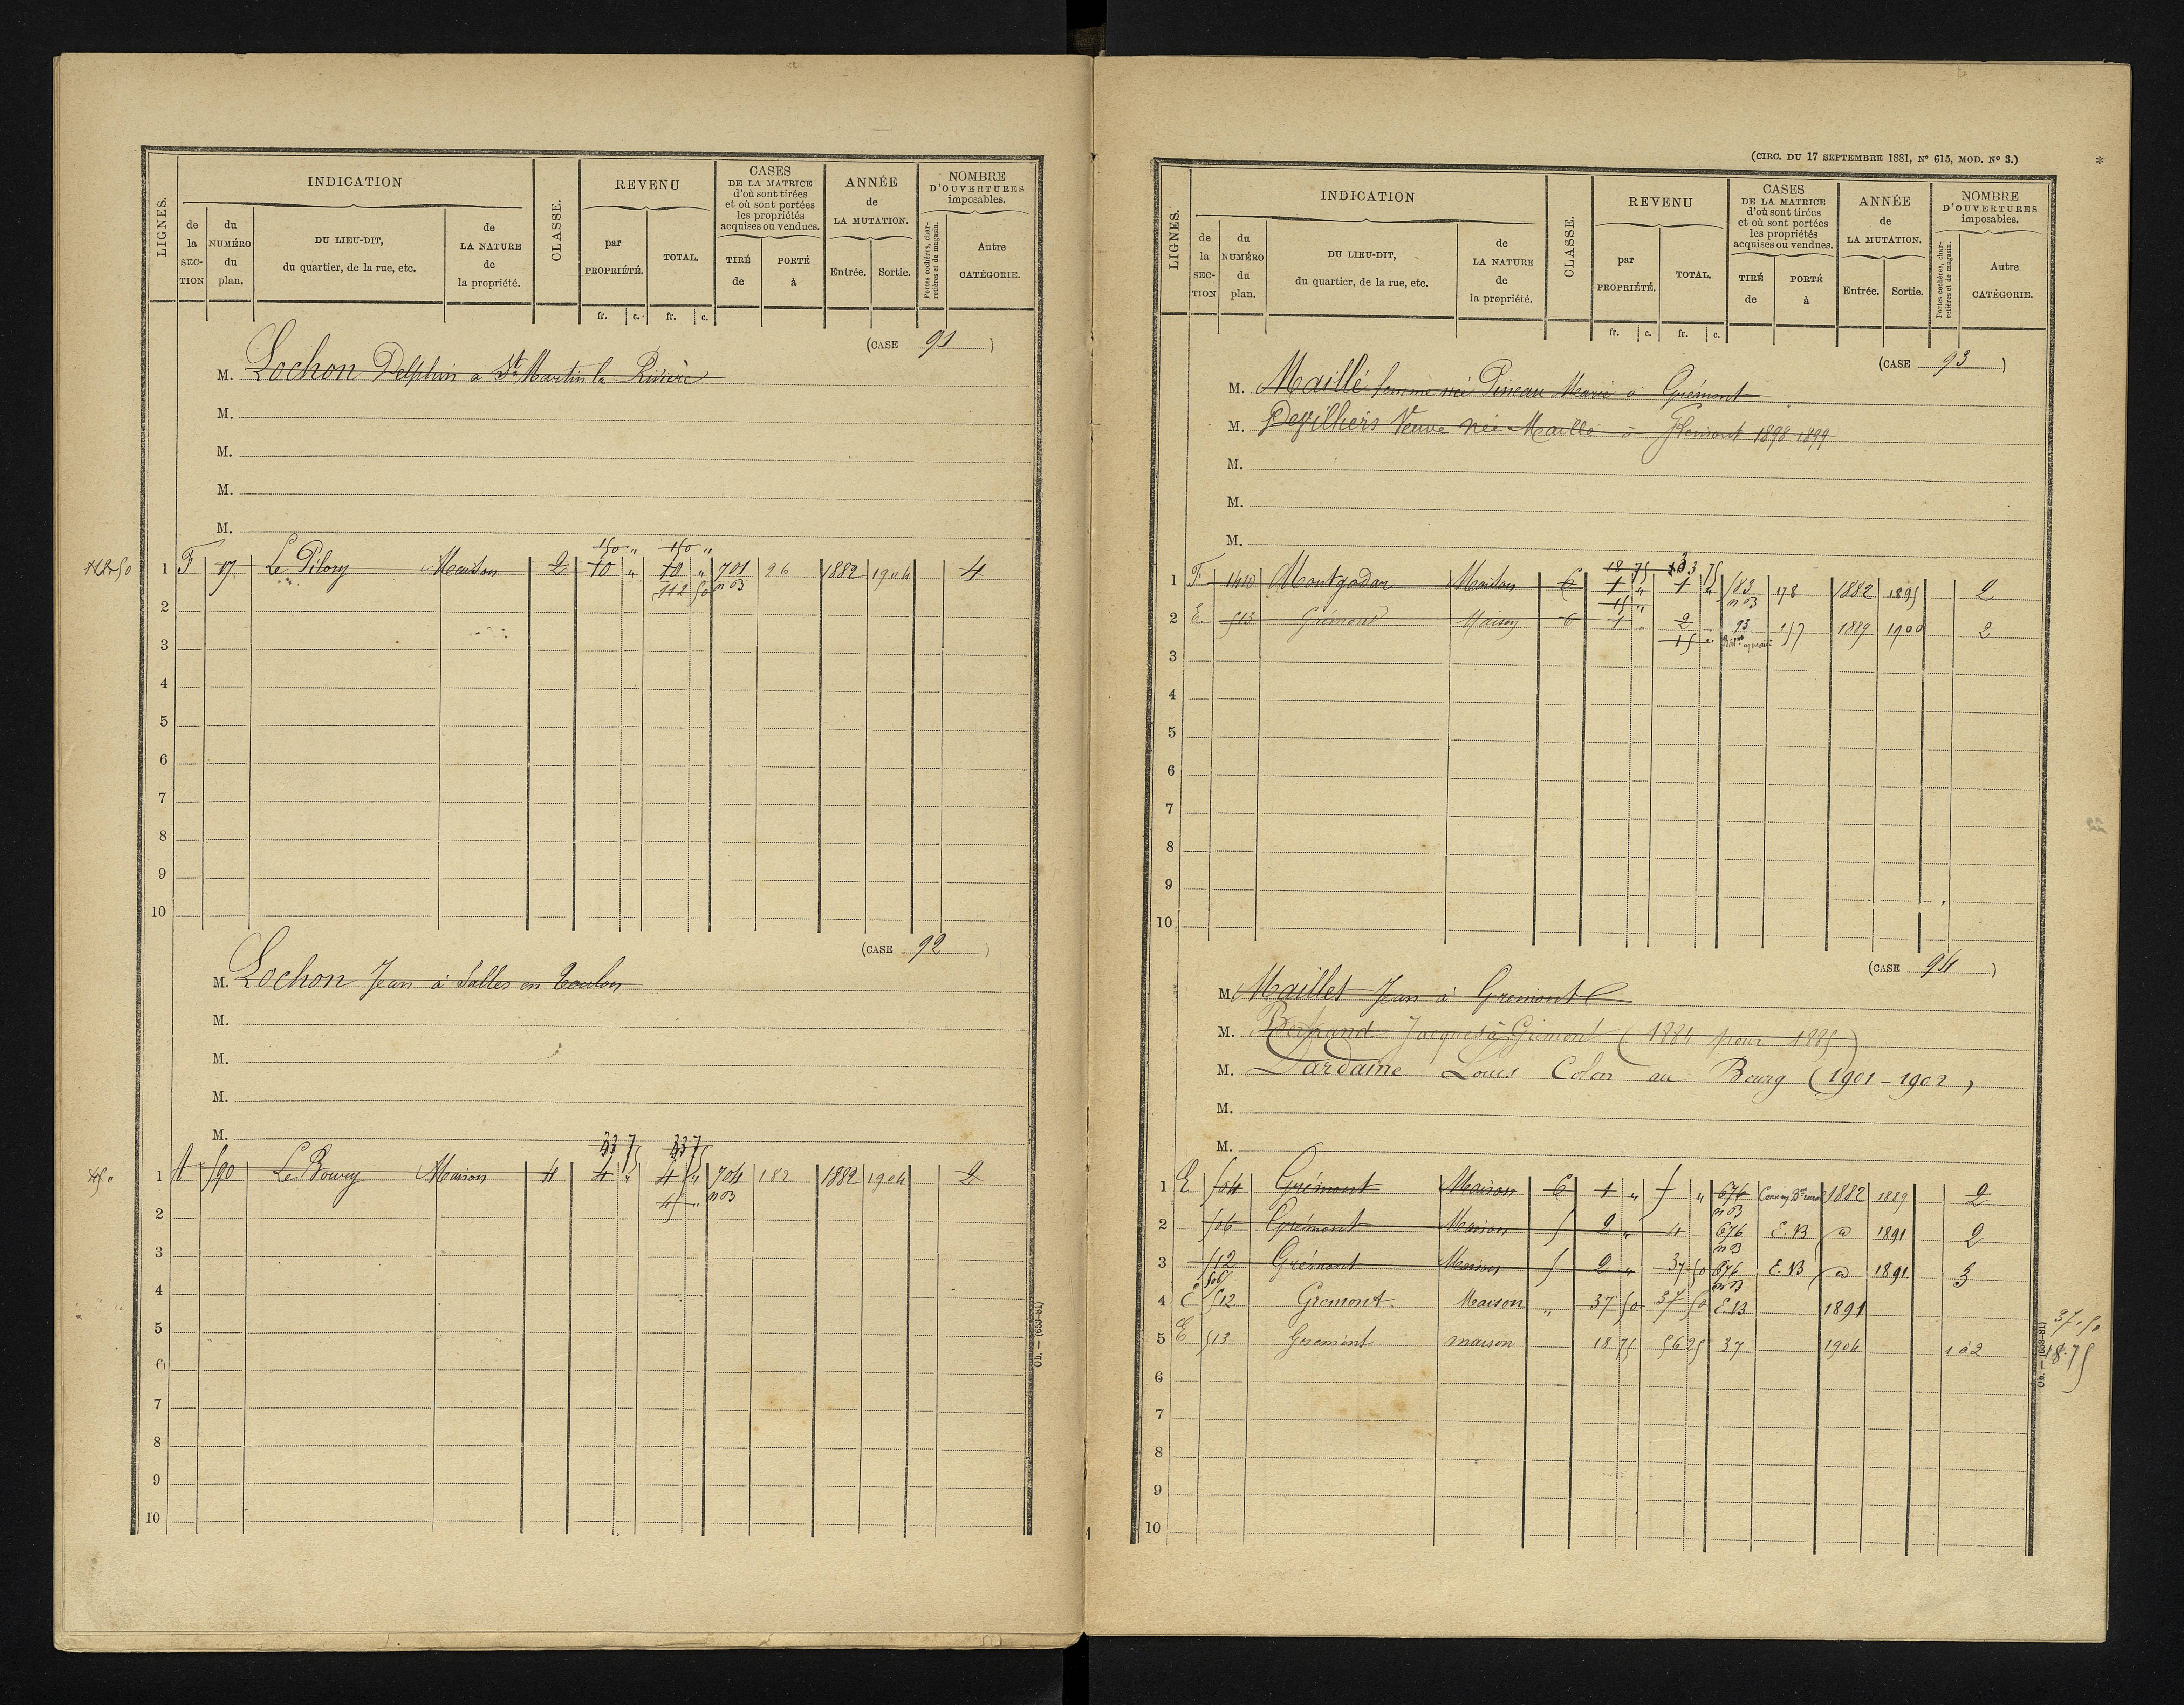 INDICATION
REVENU
CASES
DE LA MATRICE
d'où sont tirées
et où sont portées
les propriétés
acquises ou vendues.
ANNÉE
de
LA MUTATION.
NOMBRE
D'OUVERTURES
imposables.
LIGNES.
de la SEC-TION
du NUMÉRO du plan.
DU LIEU-DIT,
du quartier, de la rue, etc.
de LA NATURE de la propriété.
CLASSE.
par PROPRIÉTÉ.
TOTAL.
TIRÉ de
PORTÉ à
Entrée.
Sortie.
Portes cochères, charretières et de magasin.
Autre CATÉGORIE.
fr. c. fr. c.
(CASE 91)
M. Lochon Delphin à St Martin la Rivière
M.
M.
M.
M.
150 " 150 "
1 F 17 Le Pilory Maison 2 10 " 10 " 701 96 1882 1904 4
112 50 n B
2
3
4
5
6
7
8
9
10
(CASE 92)
M. Lochon Jean à Salles en Toulon
M.
M.
M.
M.
33 75 33 75
45 "
1 A 590 Le Bourg Maison 4 4 " 4 " 704 182 1882 1904 2
45 " n B
2
3
4
5
6
7
8
9
10
Ob. — (653-81)
(CIRC. DU 17 SEPTEMBRE 1881, N° 615, MOD. N° 3.)
INDICATION
REVENU
CASES
DE LA MATRICE
d'où sont tirées
et où sont portées
les propriétés
acquises ou vendues.
ANNÉE
de
LA MUTATION.
NOMBRE
D'OUVERTURES
imposables.
LIGNES.
de la SEC-TION
du NUMÉRO du plan.
DU LIEU-DIT,
du quartier, de la rue, etc.
de LA NATURE de la propriété.
CLASSE.
par PROPRIÉTÉ.
TOTAL.
TIRÉ de
PORTÉ à
Entrée.
Sortie.
Portes cochères, charretières et de magasin.
Autre CATÉGORIE.
fr. c. fr. c.
(CASE 93)
M. Maillé femme née Pineau Marie à Grémont
M. Veuve née Maillé à 1898-1899
M.
M.
M.
18 75
1 F Maison 6 1 " 1 " 178 1882 1895 2
15 " n B
2 E 513 Grémont Maison 6 1 " 2 93 157 1889 1900 2
15 "
3
4
5
6
7
8
9
10
(CASE 94)
M. Maillet Jean à Gremont
M. Jacques à Grémont (1884 pour 1885)
M. Dardaine Louis Colon au Bourg (1901-1902)
M.
M.
1 E 504 Grémont Maison 6 1 " 5 " 676 1882 1889 2
n B
2 506 Grémont Maison 5 2 " 4 676 E.B d 1891 2
n B
3 512 Grémont Maison 5 2 " 37 50 676 E.B d 1891 3
506 n B
4 E 512 Gremont Maison " 37 50 37 50 E.B 1891
5 E 513 Gremont maison 18 75 56 25 37 1904 1 à 2
37.50
18.75
6
7
8
9
10
Ob. — (653-81)